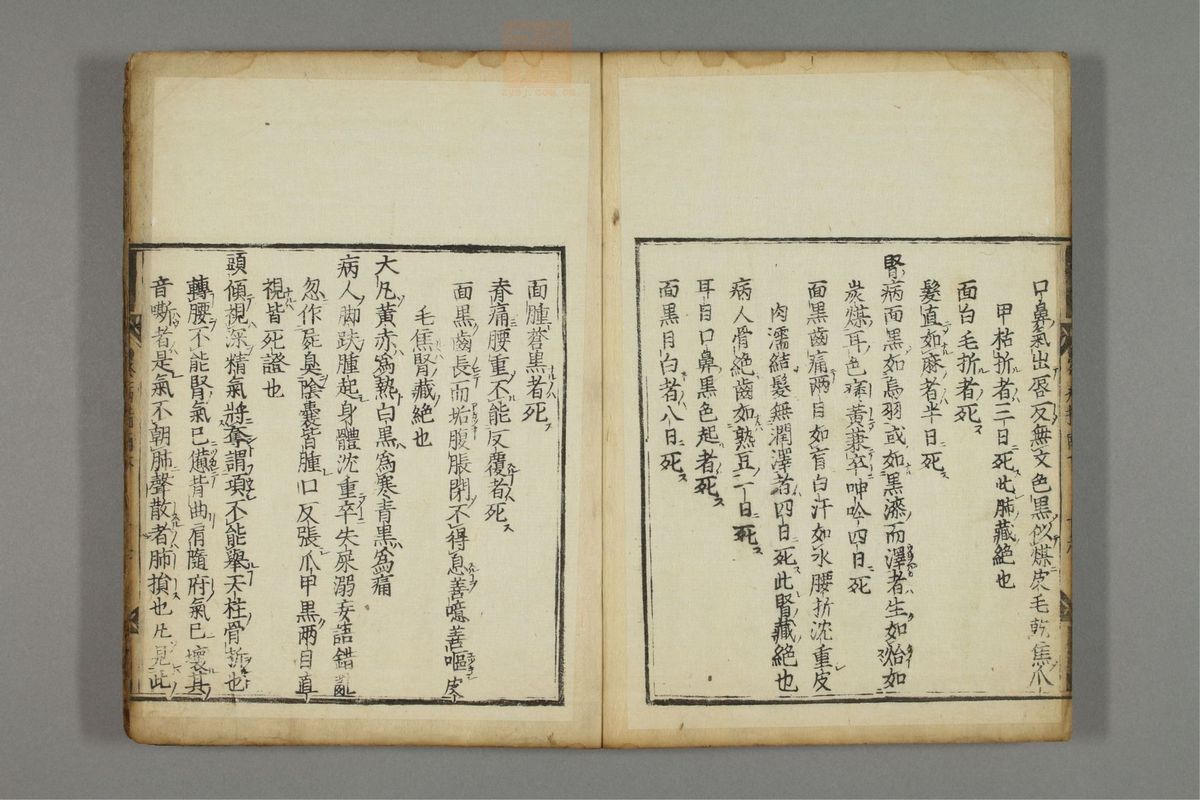 口鼻氣出唇反無文色黒似煤皮毛乾焦爪
甲枯折者三日死此肺藏絶也
面白毛折者死
髮直如麻者半日死
腎病面黒如烏羽或如黒漆而澤者生如炲如
炭煤耳色痺黃兼卒呻吟四日死
面黒齒痛兩目如盲白汗如水腰折沈重皮
肉濡結髮無潤澤者四日死此腎藏絶也
病人骨絶齒如熟豆一日死
耳目口鼻黒色起者死
面黒目白者八日死
面腫蒼黒者死
脊痛腰重不能反覆者死
面黒齒長而垢腹脹閉不得息善噫善嘔皮
毛焦腎藏絶也
大凡黄赤爲熱白黒爲寒青黒爲痛
病人脚趺腫起身體沈重卒失屎溺妄語錯亂
忽作屍臭陰囊皆腫口反張爪甲黒兩目直
視皆死證也
頭傾視深精氣將奪謂項不能舉天柱骨折也
轉腰不能腎氣已憊背曲肩隨府氣已壞其
音嘶者是氣不朝肺聲散者肺損也凡見此